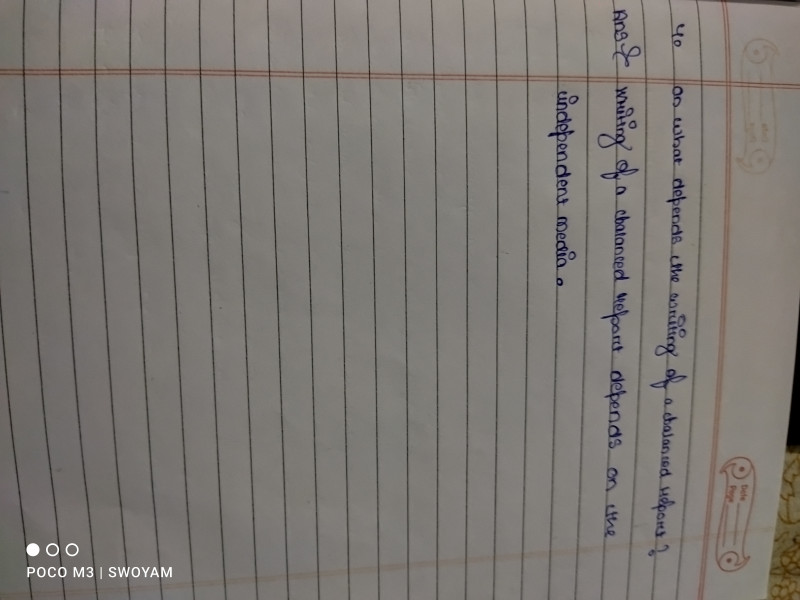 4. on what depends the writing of a balanced report?
Ans→ writing of a balanced report depends on the
independent media.
Date
Page
POCO M3 | SWOYAM